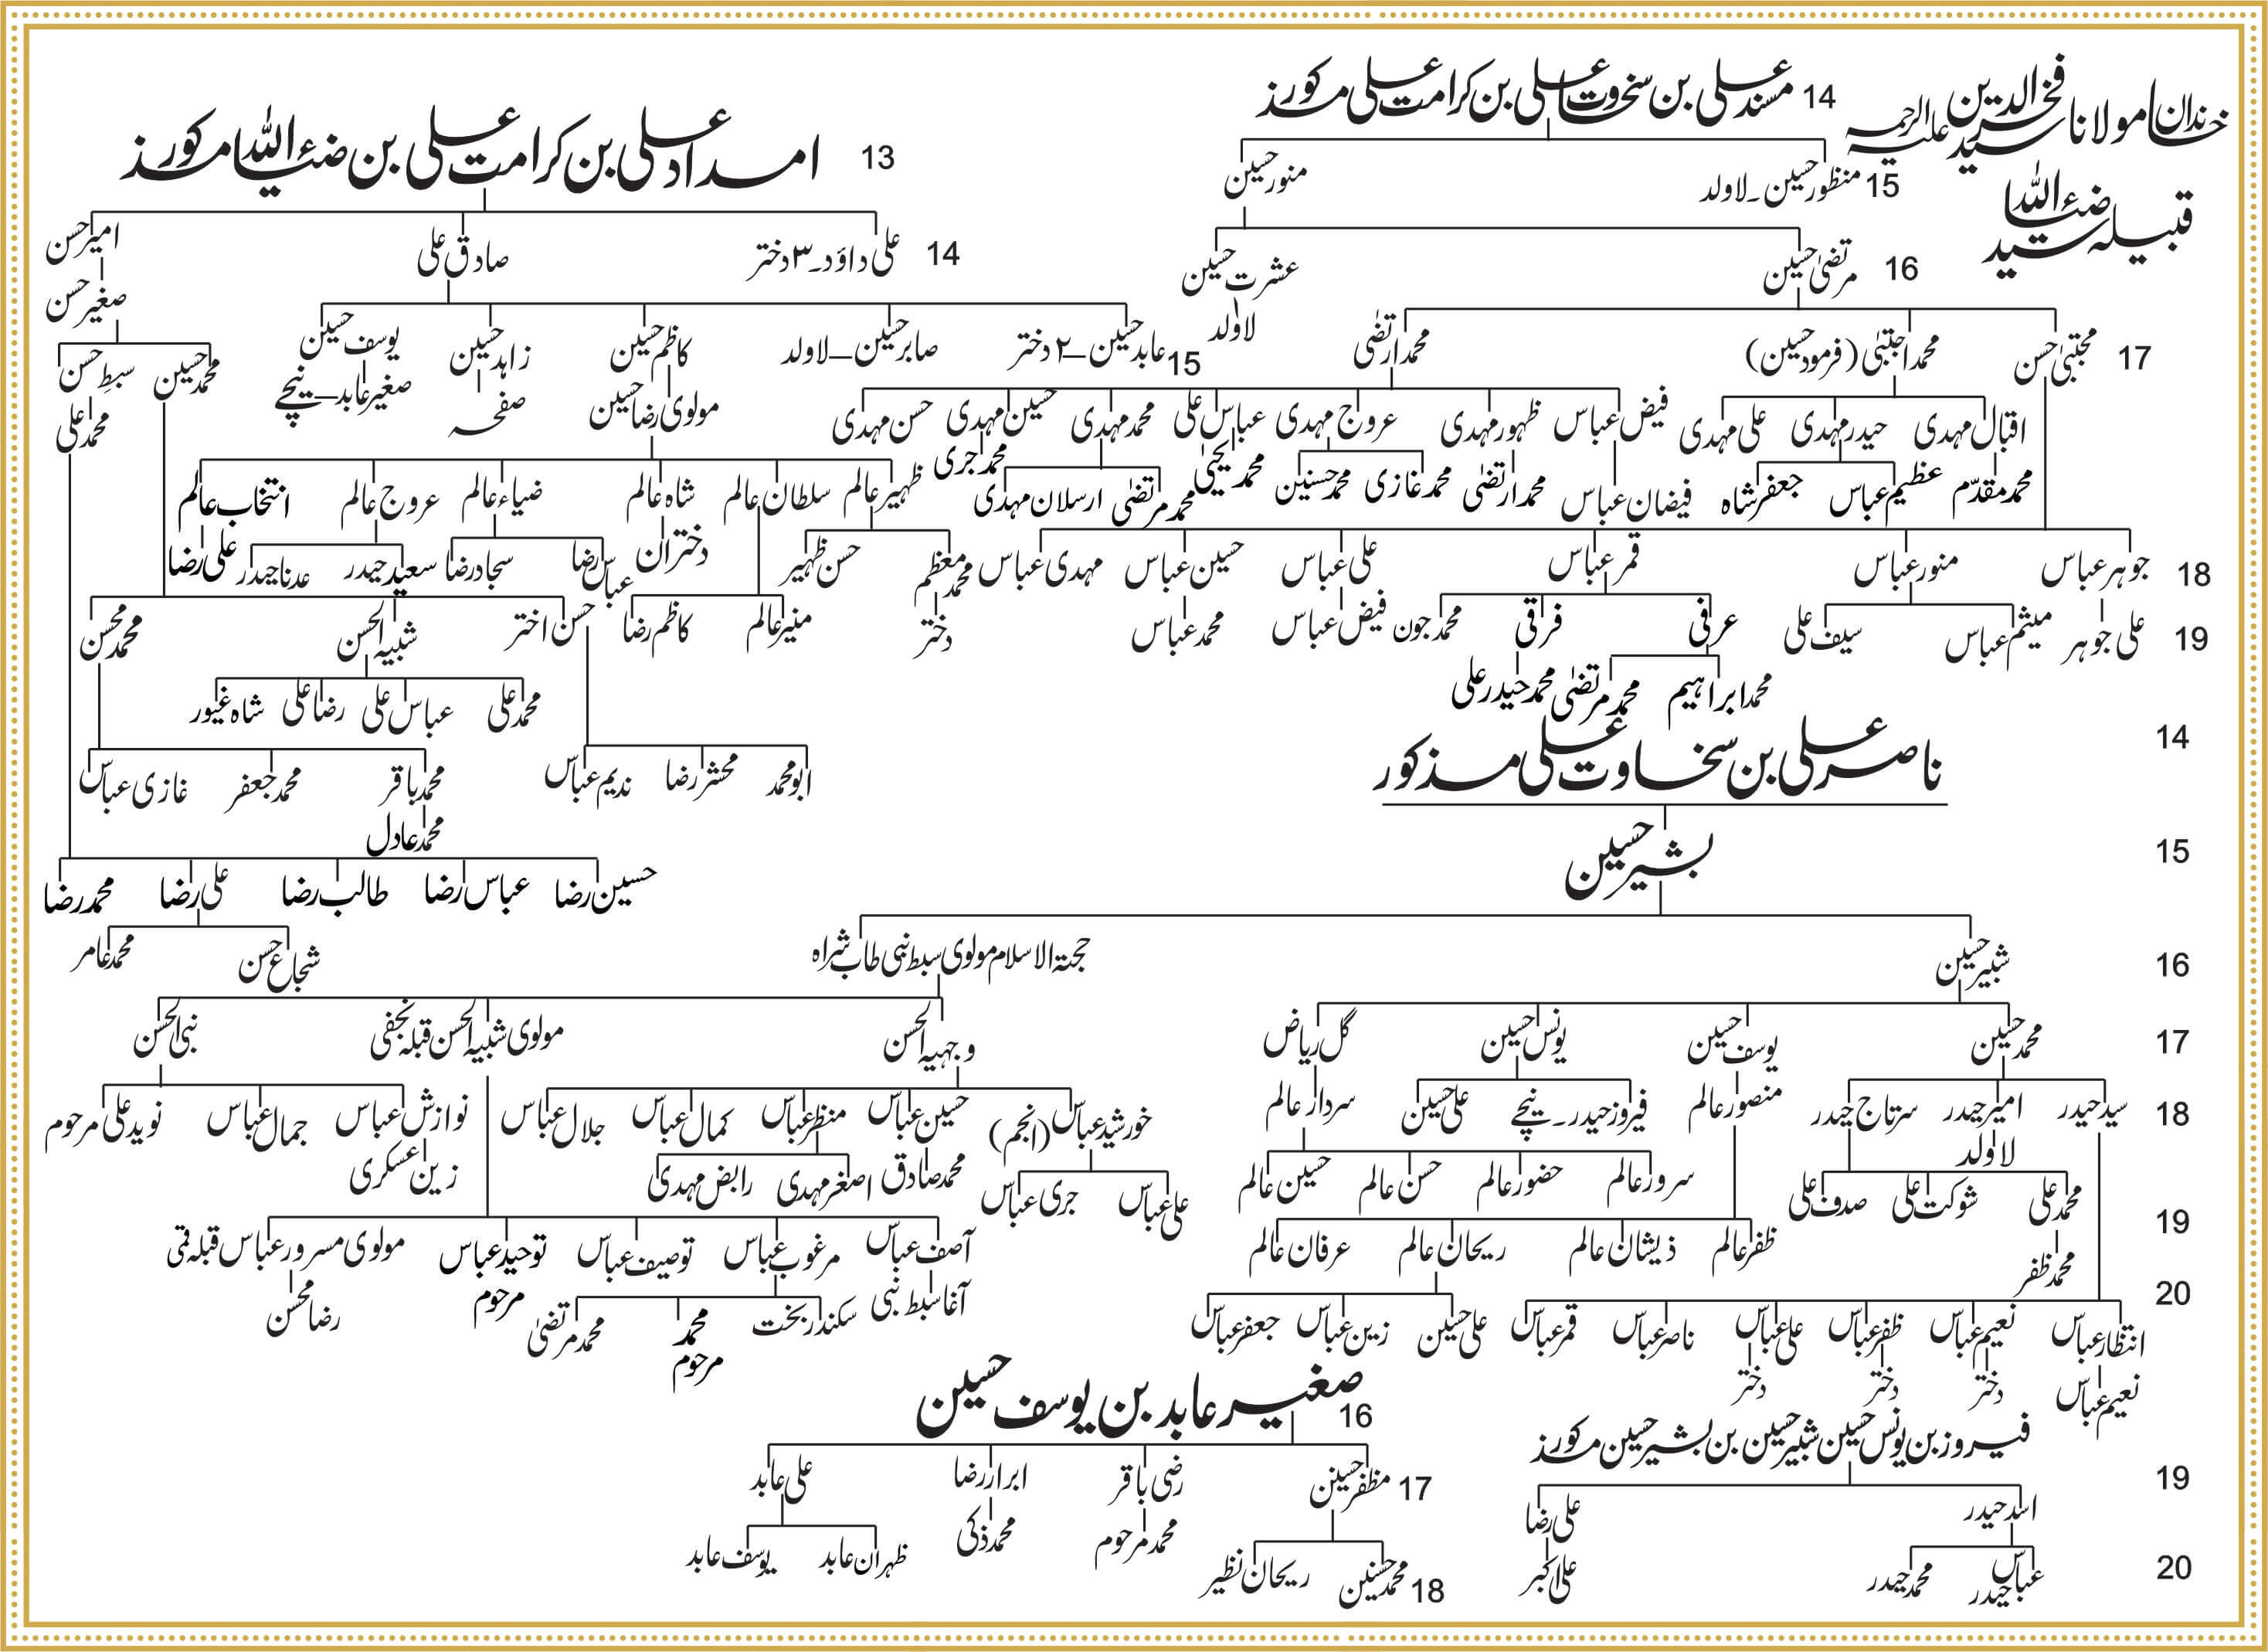 خاندان مولانا سید فخر الدین علیہ الرحمہ
قبیلہ سید ضیاء اللہ
14 مسند علی بن سخاوت علی بن کرامت علی مذکور
15 منظور حسین۔لاولد
منور حسین
16 مرتضیٰ حسین
عشرت حسین
لاولد
17 مجتبیٰ حسن
محمد اجتبیٰ (فرمود حسین)
محمد ارتضیٰ
اقبال مہدی
حیدر مہدی
علی مہدی
فیض عباس
ظہور مہدی
عروج مہدی
عباس علی
محمد مہدی
حسین مہدی
حسن مہدی
محمد مقدّم
عظیم عباس
جعفر شاہ
فیضان عباس
محمد ارتضیٰ
محمد غازی
محمد حسنین
محمد یحییٰ
محمد مرتضیٰ
ارسلان مہدی
محمد جری
18 جوہر عباس
منور عباس
قمر عباس
علی عباس
حسین عباس
مہدی عباس
19 علی جوہر
میثم عباس
سیف علی
عرفی
فرقی
محمد جون
فیض عباس
محمد عباس
محمد ابراہیم
محمد مرتضیٰ
محمد حیدر علی
13 امداد علی بن کرامت علی بن ضیاء اللہ مذکور
14 علی داؤد۔۳ دختر
صادق علی
امیر حسن
صغیر حسن
15 عابد حسین–۲ دختر
صابر حسین–لاولد
کاظم حسین
زاہد حسین
یوسف حسین
محمد حسین
سبطِ حسن
مولوی رضا حسین
صفحہ
صغیر عابد–نیچے
محمد علی
ظہیر عالم
سلطان عالم
شاہ عالم
ضیاء عالم
عروج عالم
انتخاب عالم
محمد معظم
حسن ظہیر
دختران
عباس رضا
سجاد رضا
سعید حیدر
عدنا حیدر
علی رضا
دختر
منیر عالم
کاظم رضا
حسن اختر
شبیہ الحسن
محمد محسن
محمد علی
عباس علی
رضا علی
شاہ غیور
ابو محمد
محشر رضا
ندیم عباس
محمد باقر
محمد جعفر
غازی عباس
محمد عادل
حسین رضا
عباس رضا
طالب رضا
علی رضا
محمد رضا
شجاع حسن
محمد عامر
14 ناصر علی بن سخاوت علی مذکور
15 بشیر حسین
16 شبیر حسین
حجۃ الاسلام مولوی سبط نبی طاب ثراہ
17 محمد حسین
یوسف حسین
یونس حسین
گل ریاض
وجہیہ الحسن
مولوی شبیہ الحسن قبلہ نجفی
نبی الحسن
18 سید حیدر
امیر حیدر
سرتاج حیدر
منصور عالم
فیروز حیدر۔نیچے
علی حسین
سردار عالم
خورشید عباس (انجم)
حسین عباس
منظر عباس
کمال عباس
جلال عباس
نوازش عباس
جمال عباس
نوید علی مرحوم
لاولد
سرور عالم
حضور عالم
حسن عالم
حسین عالم
محمد صادق
اصغر مہدی
رابض مہدی
زین عسکری
19 محمد علی
شوکت علی
صدف علی
علی عباس
جری عباس
ظفر عالم
ذیشان عالم
ریحان عالم
عرفان عالم
آصف عباس
مرغوب عباس
توصیف عباس
توحید عباس مرحوم
مولوی مسرور عباس قبلہ قمی
محمد ظفر
20 انتظار عباس
نعیم عباس
ظفر عباس
علی عباس
ناصر عباس
قمر عباس
علی حسین
زین عباس
جعفر عباس
آغا سبط نبی
سکندر بخت
محمد مرحوم
محمد مرتضیٰ
رضا محسن
نعیم عباس
دختر
دختر
دختر
فیروز بن یونس حسین شبیر حسین بن بشیر حسین مذکور
19 اسد حیدر
علی رضا
20 عباس حیدر
محمد حیدر
علی اکبر
صغیر عابد بن یوسف حسین
16
17 مظفر حسین
رضی باقر
ابرار رضا
علی عابد
18 محمد حسنین
ریحان نظیر
محمد مرحوم
محمد ذکی
ظہران عابد
یوسف عابد